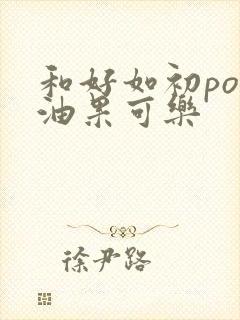 和好如初po
油果可樂
徐尹路